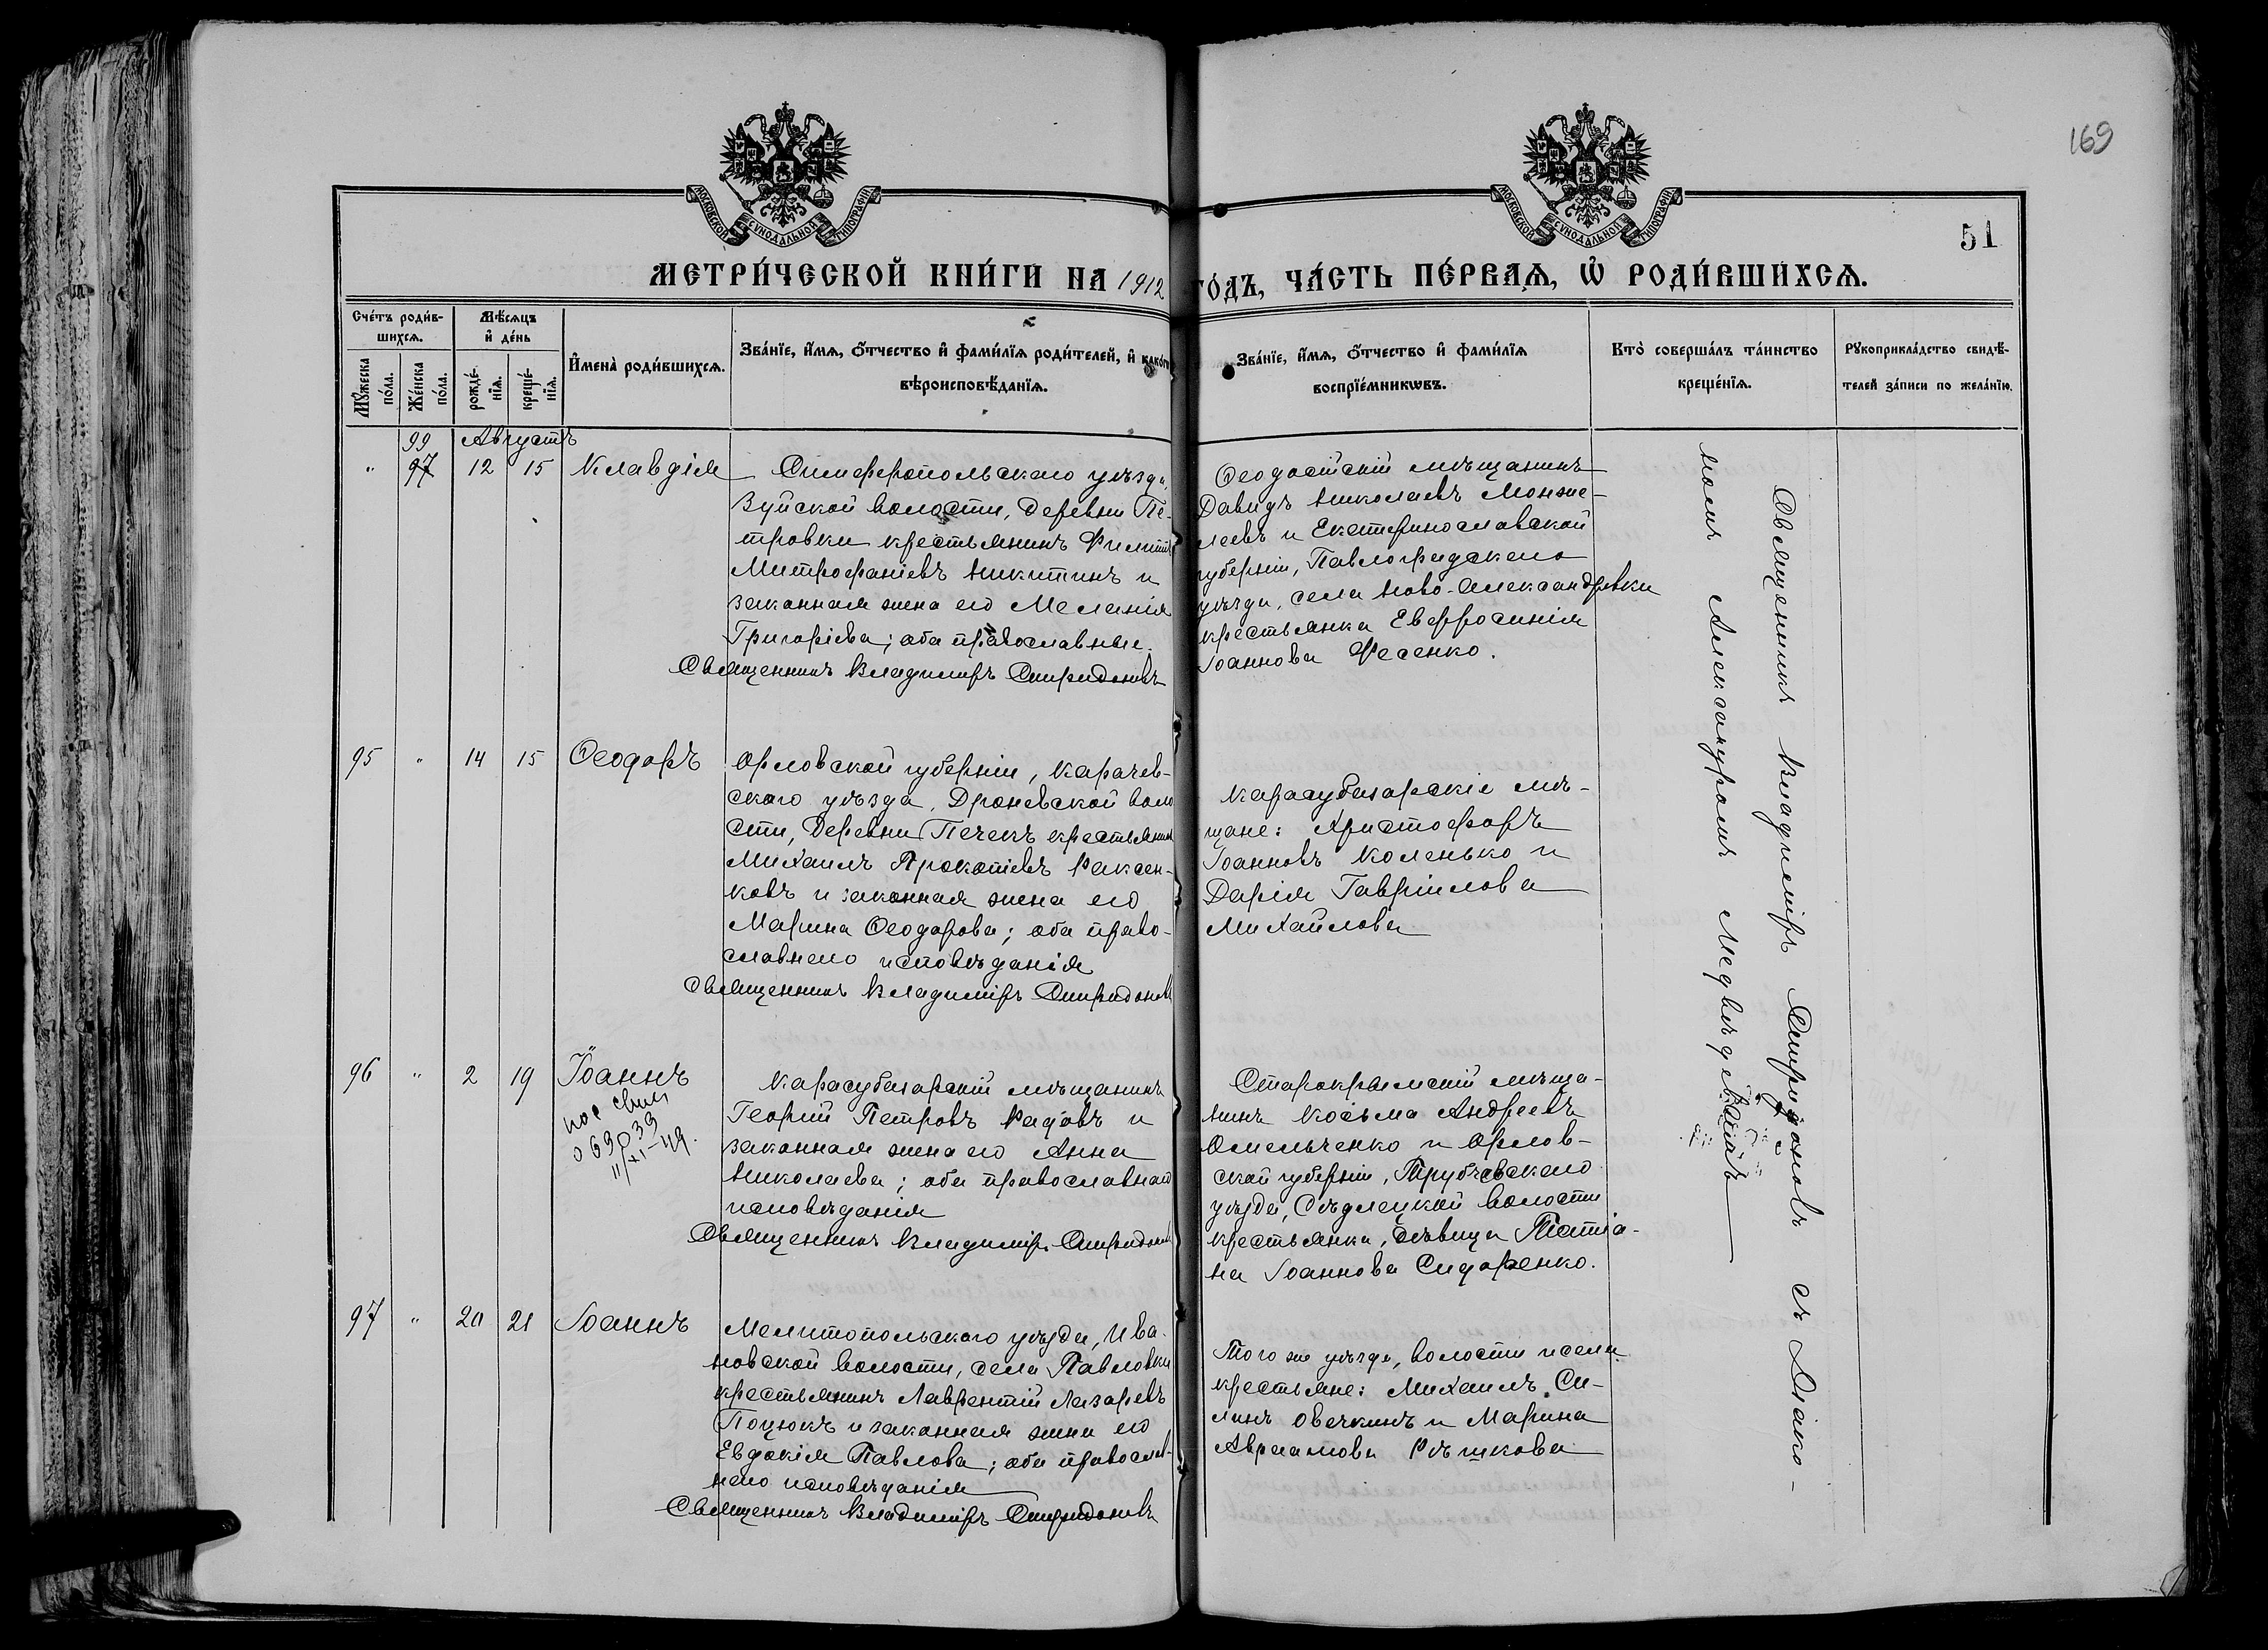 169
МОСКОВСКОЙ СѴНОДАЛЬНОЙ ТИПОГРАФІИ
МОСКОВСКОЙ СѴНОДАЛЬНОЙ ТИПОГРАФІИ
51
МЕТРИ́ЧЕСКОЙ КНИ́ГИ НА 1912 ГО́ДЪ, ЧА́СТЬ ПЕ́РВАѦ, Ѡ҆ РОДИ́ВШИХСѦ.
Сче́тъ роди́в-
шихсѧ.
Мꙋ́жеска по́ла.
Же́нска по́ла.
Мѣ́сѧцъ
и҆ де́нь
рожде́-
нїѧ.
креще́-
нїѧ.
И҆мена̀ роди́вшихсѧ.
Зва́нїе, и҆́мѧ, ѻ҆́тчество и҆ фами́лїѧ роди́телей, и҆ како́гѡ
вѣроисповѣ́данїѧ.
Зва́нїе, и҆́мѧ, ѻ҆́тчество и҆ фами́лїѧ
воспрїе́мникѡвъ.
Кто̀ соверша́лъ та́инство
креще́нїѧ.
Рꙋкоприкла́дство свидѣ́-
телей за́писи по жела́нїю.
99 Августъ
" 97 12 15 Клавдія
Симферопольскаго уѣзда,
Зуйской волости, деревни Пе-
тровки крестьянинъ Филиппъ
Митрофаніевъ Никитинъ и
законная жена его Меланія
Григоріева; оба православные.
Священникъ Владимиръ Спиридоновъ
Ѳеодосійскій мѣщанинъ
Давидъ Николаевъ Монже-
леевъ и Екатеринославской
губерніи, Павлоградскаго
уѣзда, села Ново-Александровки
крестьянка Евфросинія
Іоаннова Фесенко.
95 " 14 15 Ѳеодоръ
Орловской губерніи, Карачев-
скаго уѣзда, Дроневской воло
сти, деревни Печекъ крестьянинъ
Михаилъ Прокопіевъ Раксен-
ковъ и законная жена его
Марина Ѳеодорова; оба право-
славнаго исповѣданія
Священникъ Владиміръ Спиридоновъ
Карасубазарскіе мѣ-
щане: Христофоръ
Іоанновъ Коленько и
Дарія Гавріилова
Михайлова
96 " 2 19 Іоаннъ
069039
11/XI-49.
Карасубазарскій мѣщанинъ
Георгій Петровъ Радовъ и
законная жена его Анна
Николаева; оба православнаго
исповѣданія
Священникъ Владиміръ Спиридоновъ
Старокрымскій мѣща-
нинъ Косьма Андреевъ
Омельченко и Орлов-
ской губерніи, Трубчевскаго
уѣзда, Сѣдлецкой волости
крестьянка, дѣвица Татіа-
на Іоаннова Сидоренко.
97 " 20 21 Іоаннъ
Мелитопольскаго уѣзда, Ива-
новской волости, села Павловки
крестьянинъ Лаврентій Лазаревъ
Поцюкъ и законная жена его
Евдокія Павлова; оба православ-
наго исповѣданія
Священникъ Владимиръ Спиридоновъ
Того же уѣзда, волости и села
крестьяне: Михаилъ Си-
линъ Овечкинъ и Марина
Авраамова Рѣшкова
Священникъ Владиміръ Спиридоновъ съ Діако-
номъ Александромъ Медвѣдевымъ